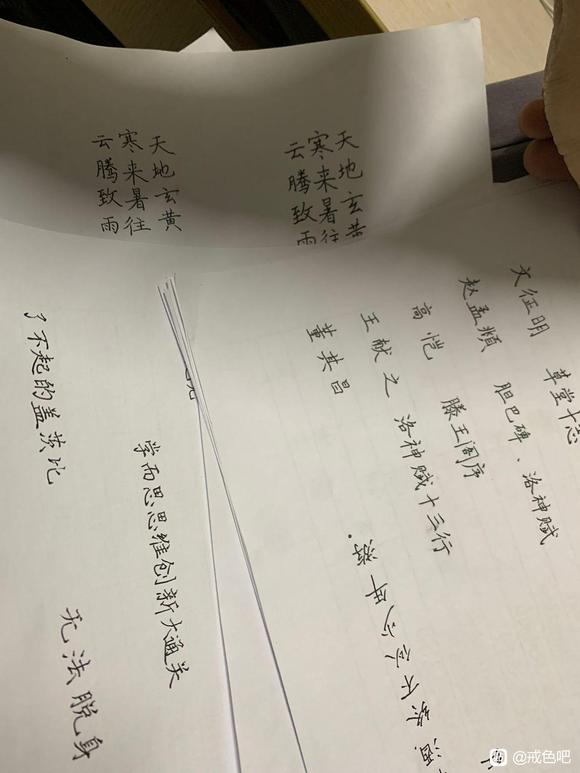 天地玄黄
寒来暑往
云腾致雨
天地玄黄
寒来暑往
云腾致雨
文征明 草堂十志
赵孟頫 胆巴碑、洛神赋
高恺 滕王阁序
王献之 洛神赋十三行
董其昌
酒,终不似少年游.
学而思思维创新大通关
了不起的盖茨比
无法脱身
@戒色吧